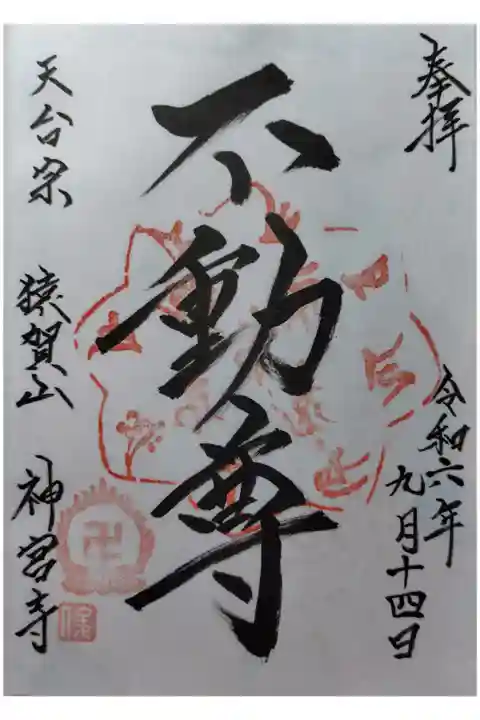 奉拝
令和六年
九月十四日
不動尊
天台宗 猿賀山 神宮寺